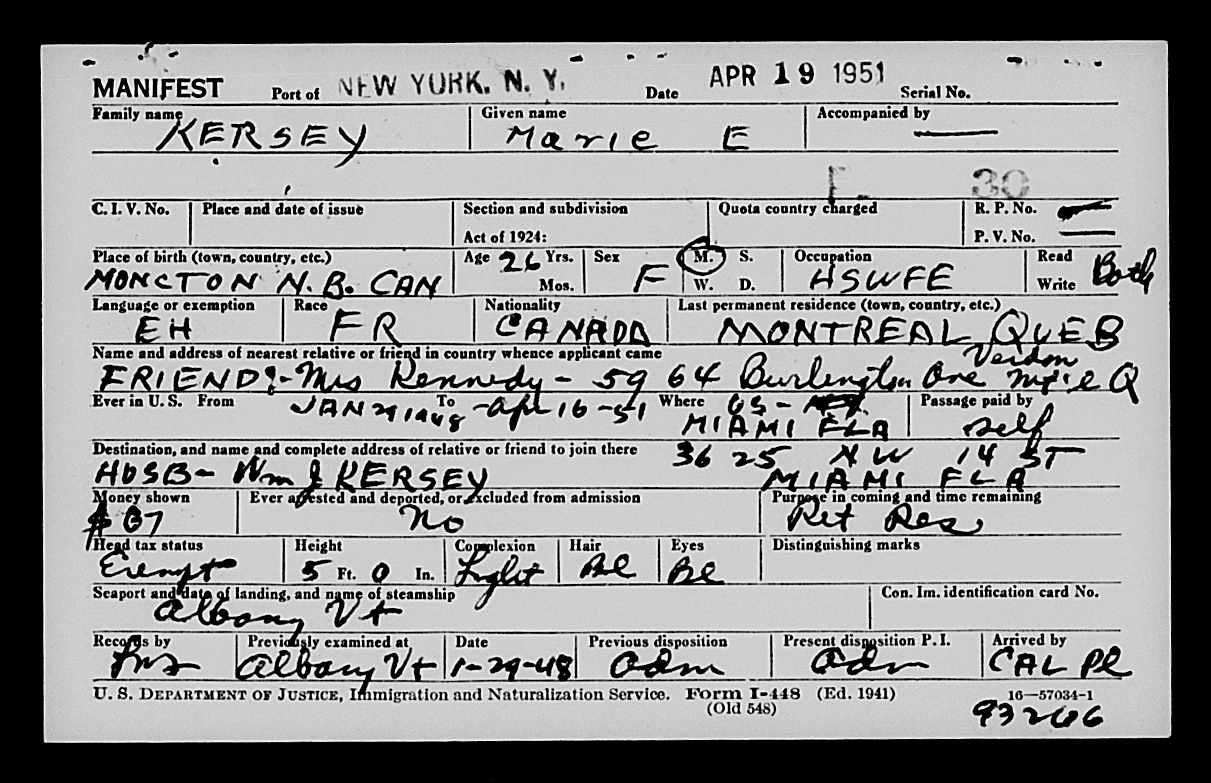 MANIFEST Port of NEW YORK, N. Y. Date APR 19 1951 Serial No.
Family name Given name Accompanied by
KERSEY Marie E —
F 30
C. I. V. No. Place and date of issue Section and subdivision Quota country charged R. P. No. —
Act of 1924: P. V. No. —
Place of birth (town, country, etc.) Age 26 Yrs. Sex M. S. Occupation Read
MONCTON N.B. CAN Mos. F W. D. HSWFE Write Both
Language or exemption Race Nationality Last permanent residence (town, country, etc.)
EH FR CANADA MONTREAL, QUEB
Name and address of nearest relative or friend in country whence applicant came Verdun
FRIEND:- Mrs Kennedy - 59 64 Burlington Ave Q
Ever in U. S. From JAN 29 1948 To - Apr 16 - 51 Where US - Passage paid by
MIAMI FLA self
Destination, and name and complete address of relative or friend to join there 36 25 NW 14 ST
HUSB - Wm J KERSEY MIAMI FLA
Money shown Ever arrested and deported, or excluded from admission Purpose in coming and time remaining
$ 67 No Ret Res
Head tax status Height Complexion Hair Eyes Distinguishing marks
Exempt 5 Ft. 0 In. Light Bl Bl
Seaport and date of landing, and name of steamship Con. Im. identification card No.
Albany Vt
Records by Previously examined at Date Previous disposition Present disposition P. I. Arrived by
Albany Vt 1-29-48 adm adm CAL Pl
U. S. DEPARTMENT OF JUSTICE, Immigration and Naturalization Service. Form I-448 (Ed. 1941) 16—57034-1
(Old 548) 93266